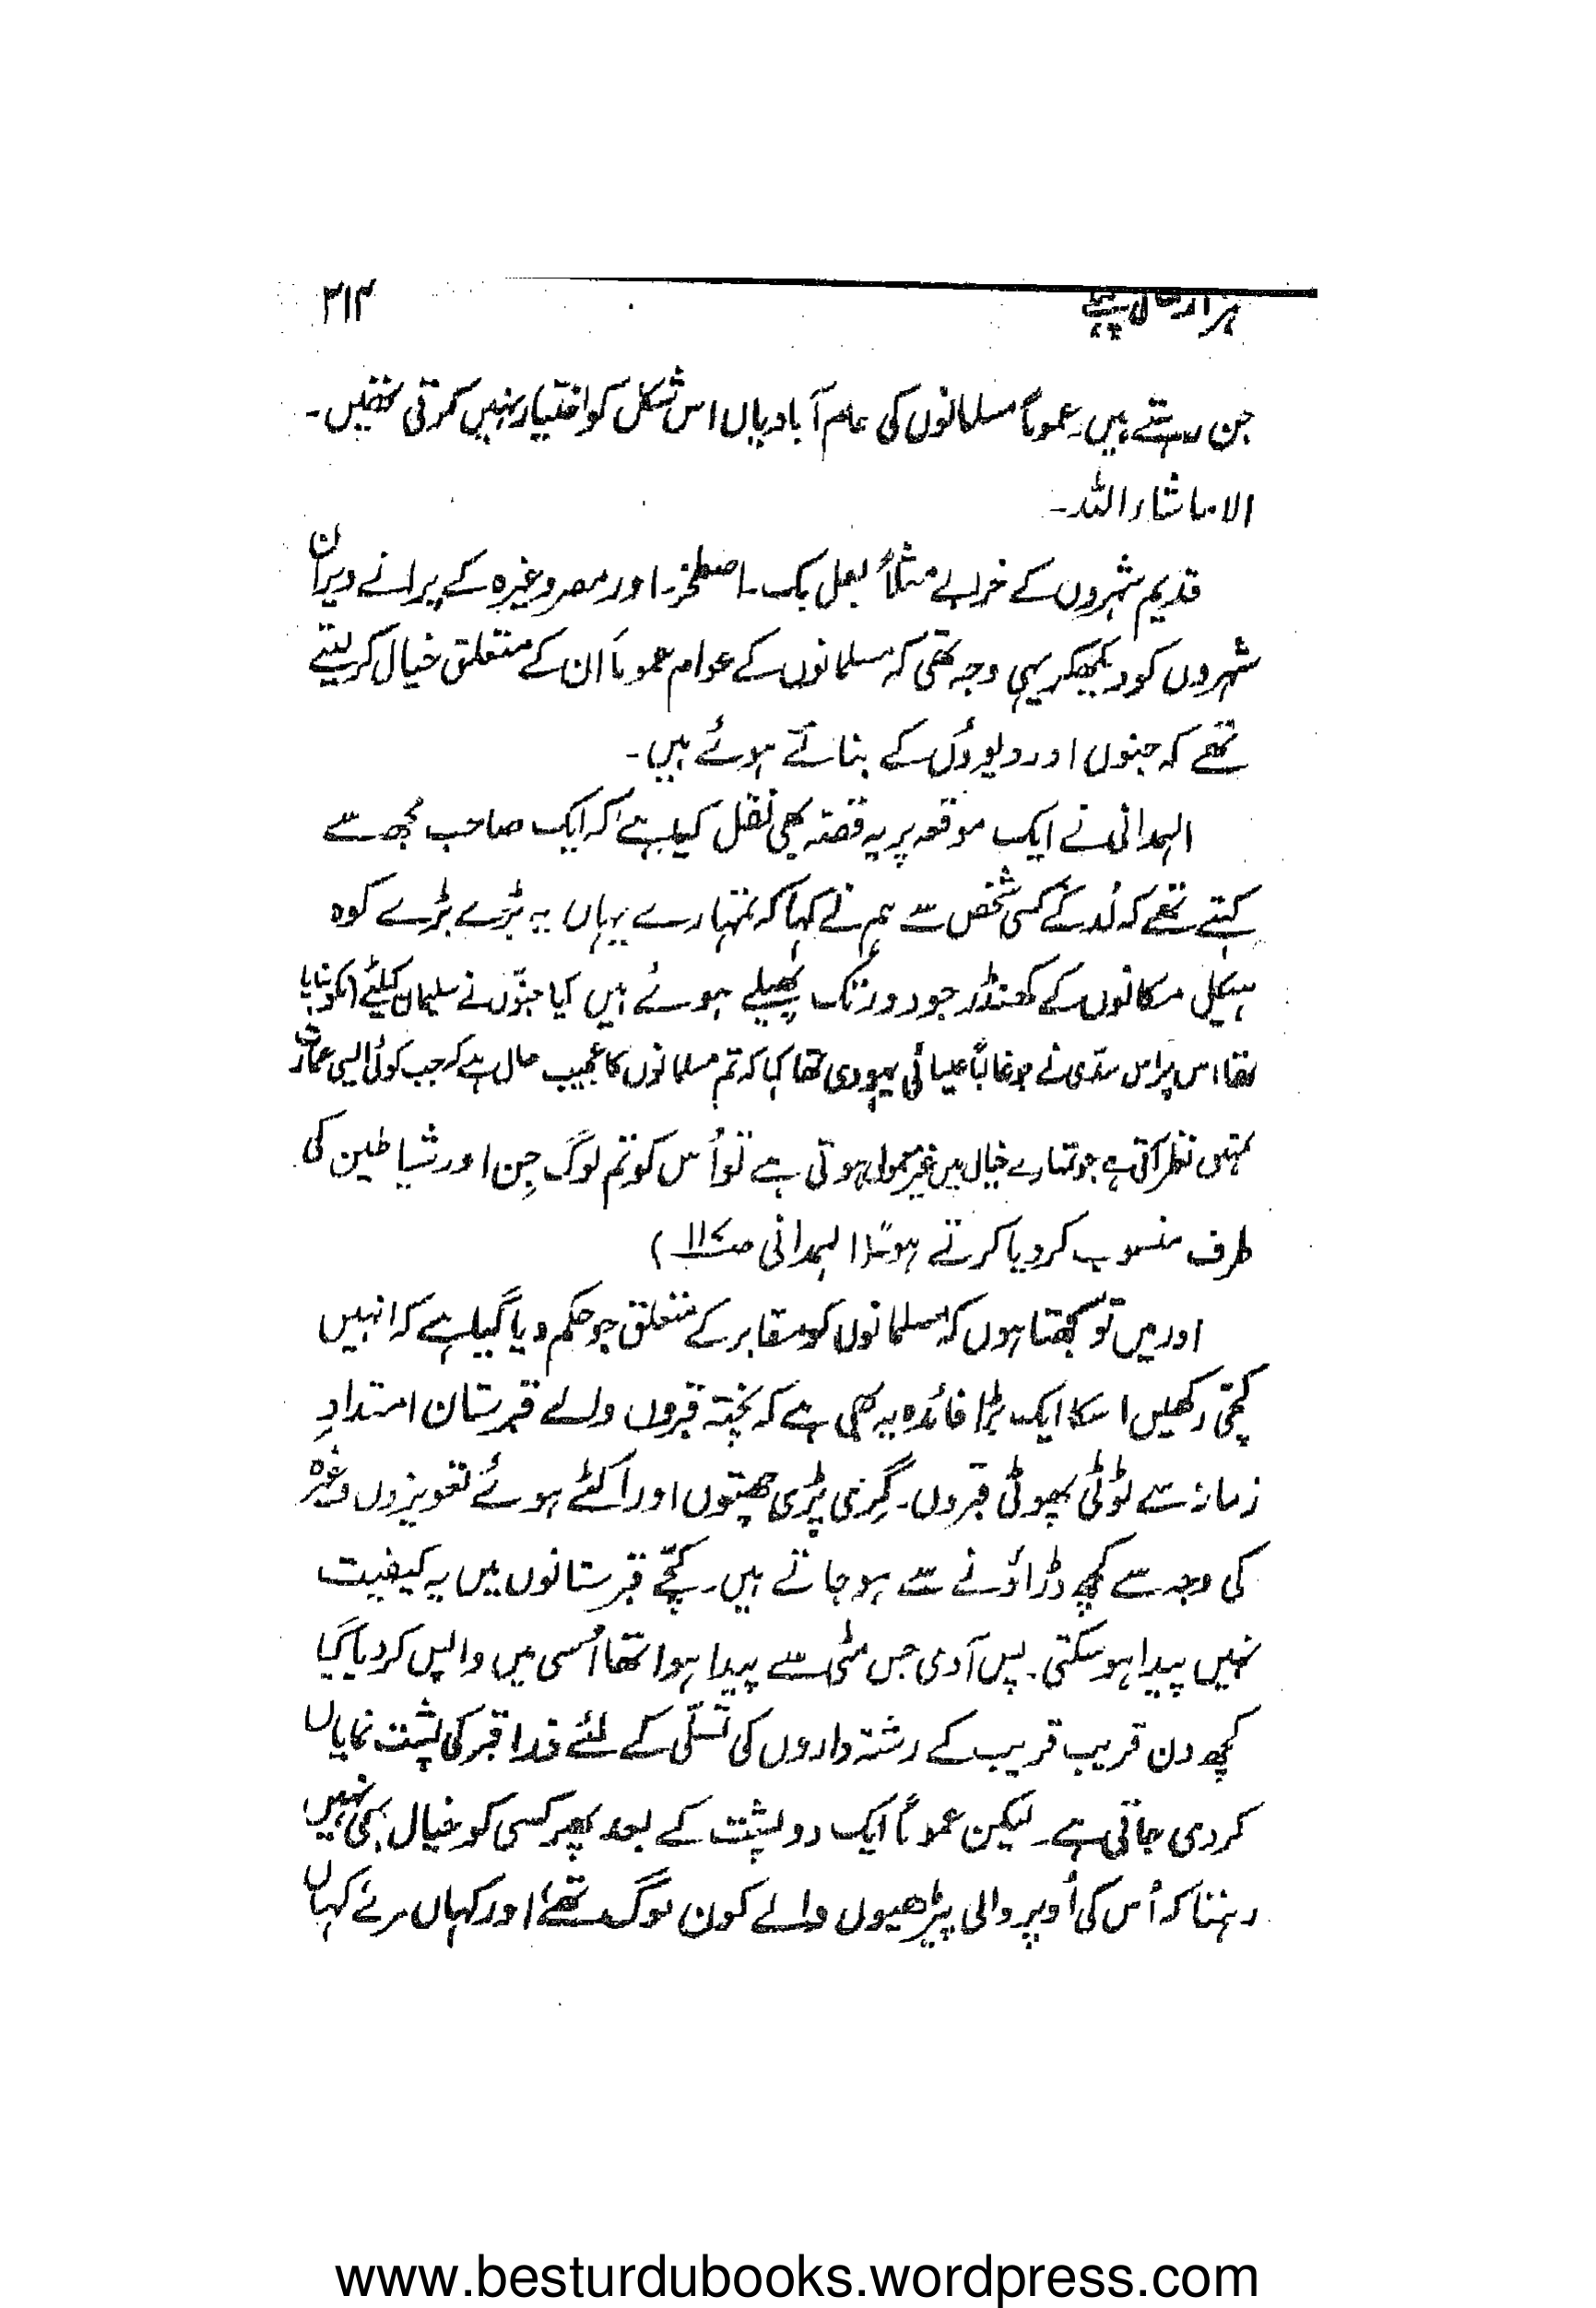 ہزار سال پہلے ۲۱۳
جن رہتے ہیں۔ عموماً مسلمانوں کی عام آبادیاں اس شکل کو اختیار نہیں کرتی تھیں۔
الا ماشاء اللہ۔
قدیم شہروں کے خرابے مثلاً بعل بک۔ اصطخر۔ اور مصر وغیرہ کے پرانے ویران
شہروں کو دیکھکر یہی وجہ تھی کہ مسلمانوں کے عوام عموماً ان کے متعلق خیال کرلیتے
تھے کہ جنوں اور دیوؤں کے بنائے ہوئے ہیں۔
الہمدانی نے ایک موقعہ پر یہ قصّہ بھی نقل کیا ہے کہ ایک صاحب مجھ سے
کہتے تھے کہ لُد کے کسی شخص سے ہم نے کہا کہ تمہارے یہاں یہ بڑے بڑے کوہ
ہیکل مکانوں کے کھنڈر جو دور تک پھیلے ہوئے ہیں کیا جنّوں نے سلیمان کیلئے انکو بنایا
تھا، اس پر اس لدّی نے جو غالباً عیسائی یہودی تھا کہا کہ تم مسلمانوں کا عجیب حال ہے کہ جب کوئی ایسی عمارت
تمہیں نظر آتی ہے جو تمہارے خیال میں غیر معمولی ہوتی ہے تو اُس کو تم لوگ جِن اور شیاطین کی
طرف منسوب کردیا کرتے ہو (الہمدانی ص۱۱۷)
اور میں تو سمجھتا ہوں کہ مسلمانوں کو مقابر کے متعلق جو حکم دیا گیا ہے کہ انہیں
کچّی رکھیں اسکا ایک بڑا فائدہ یہ بھی ہے کہ پختہ قبروں والے قبرستان امتدادِ
زمانہ سے ٹوٹی پھوٹی قبروں۔ گِری پڑی چھتوں اور اُکٹے ہوئے تعویزوں وغیرہ
کی وجہ سے کچھ ڈراؤنے سے ہوجاتے ہیں۔ کچّے قبرستانوں میں یہ کیفیت
نہیں پیدا ہوسکتی۔ پس آدمی جس مٹی سے پیدا ہوا تھا اُسی میں واپس کردیا گیا
کچھ دن قریب قریب کے رشتہ داروں کی تسلّی کے لئے ذرا قبر کی پشت نمایاں
کردی جاتی ہے۔ لیکن عموماً ایک دو پشت کے بعد پھر کسی کو خیال بھی نہیں
رہتا کہ اُس کی اُوپر والی پیڑھیوں والے کون لوگ تھے اور کہاں مرے کہاں
www.besturdubooks.wordpress.com